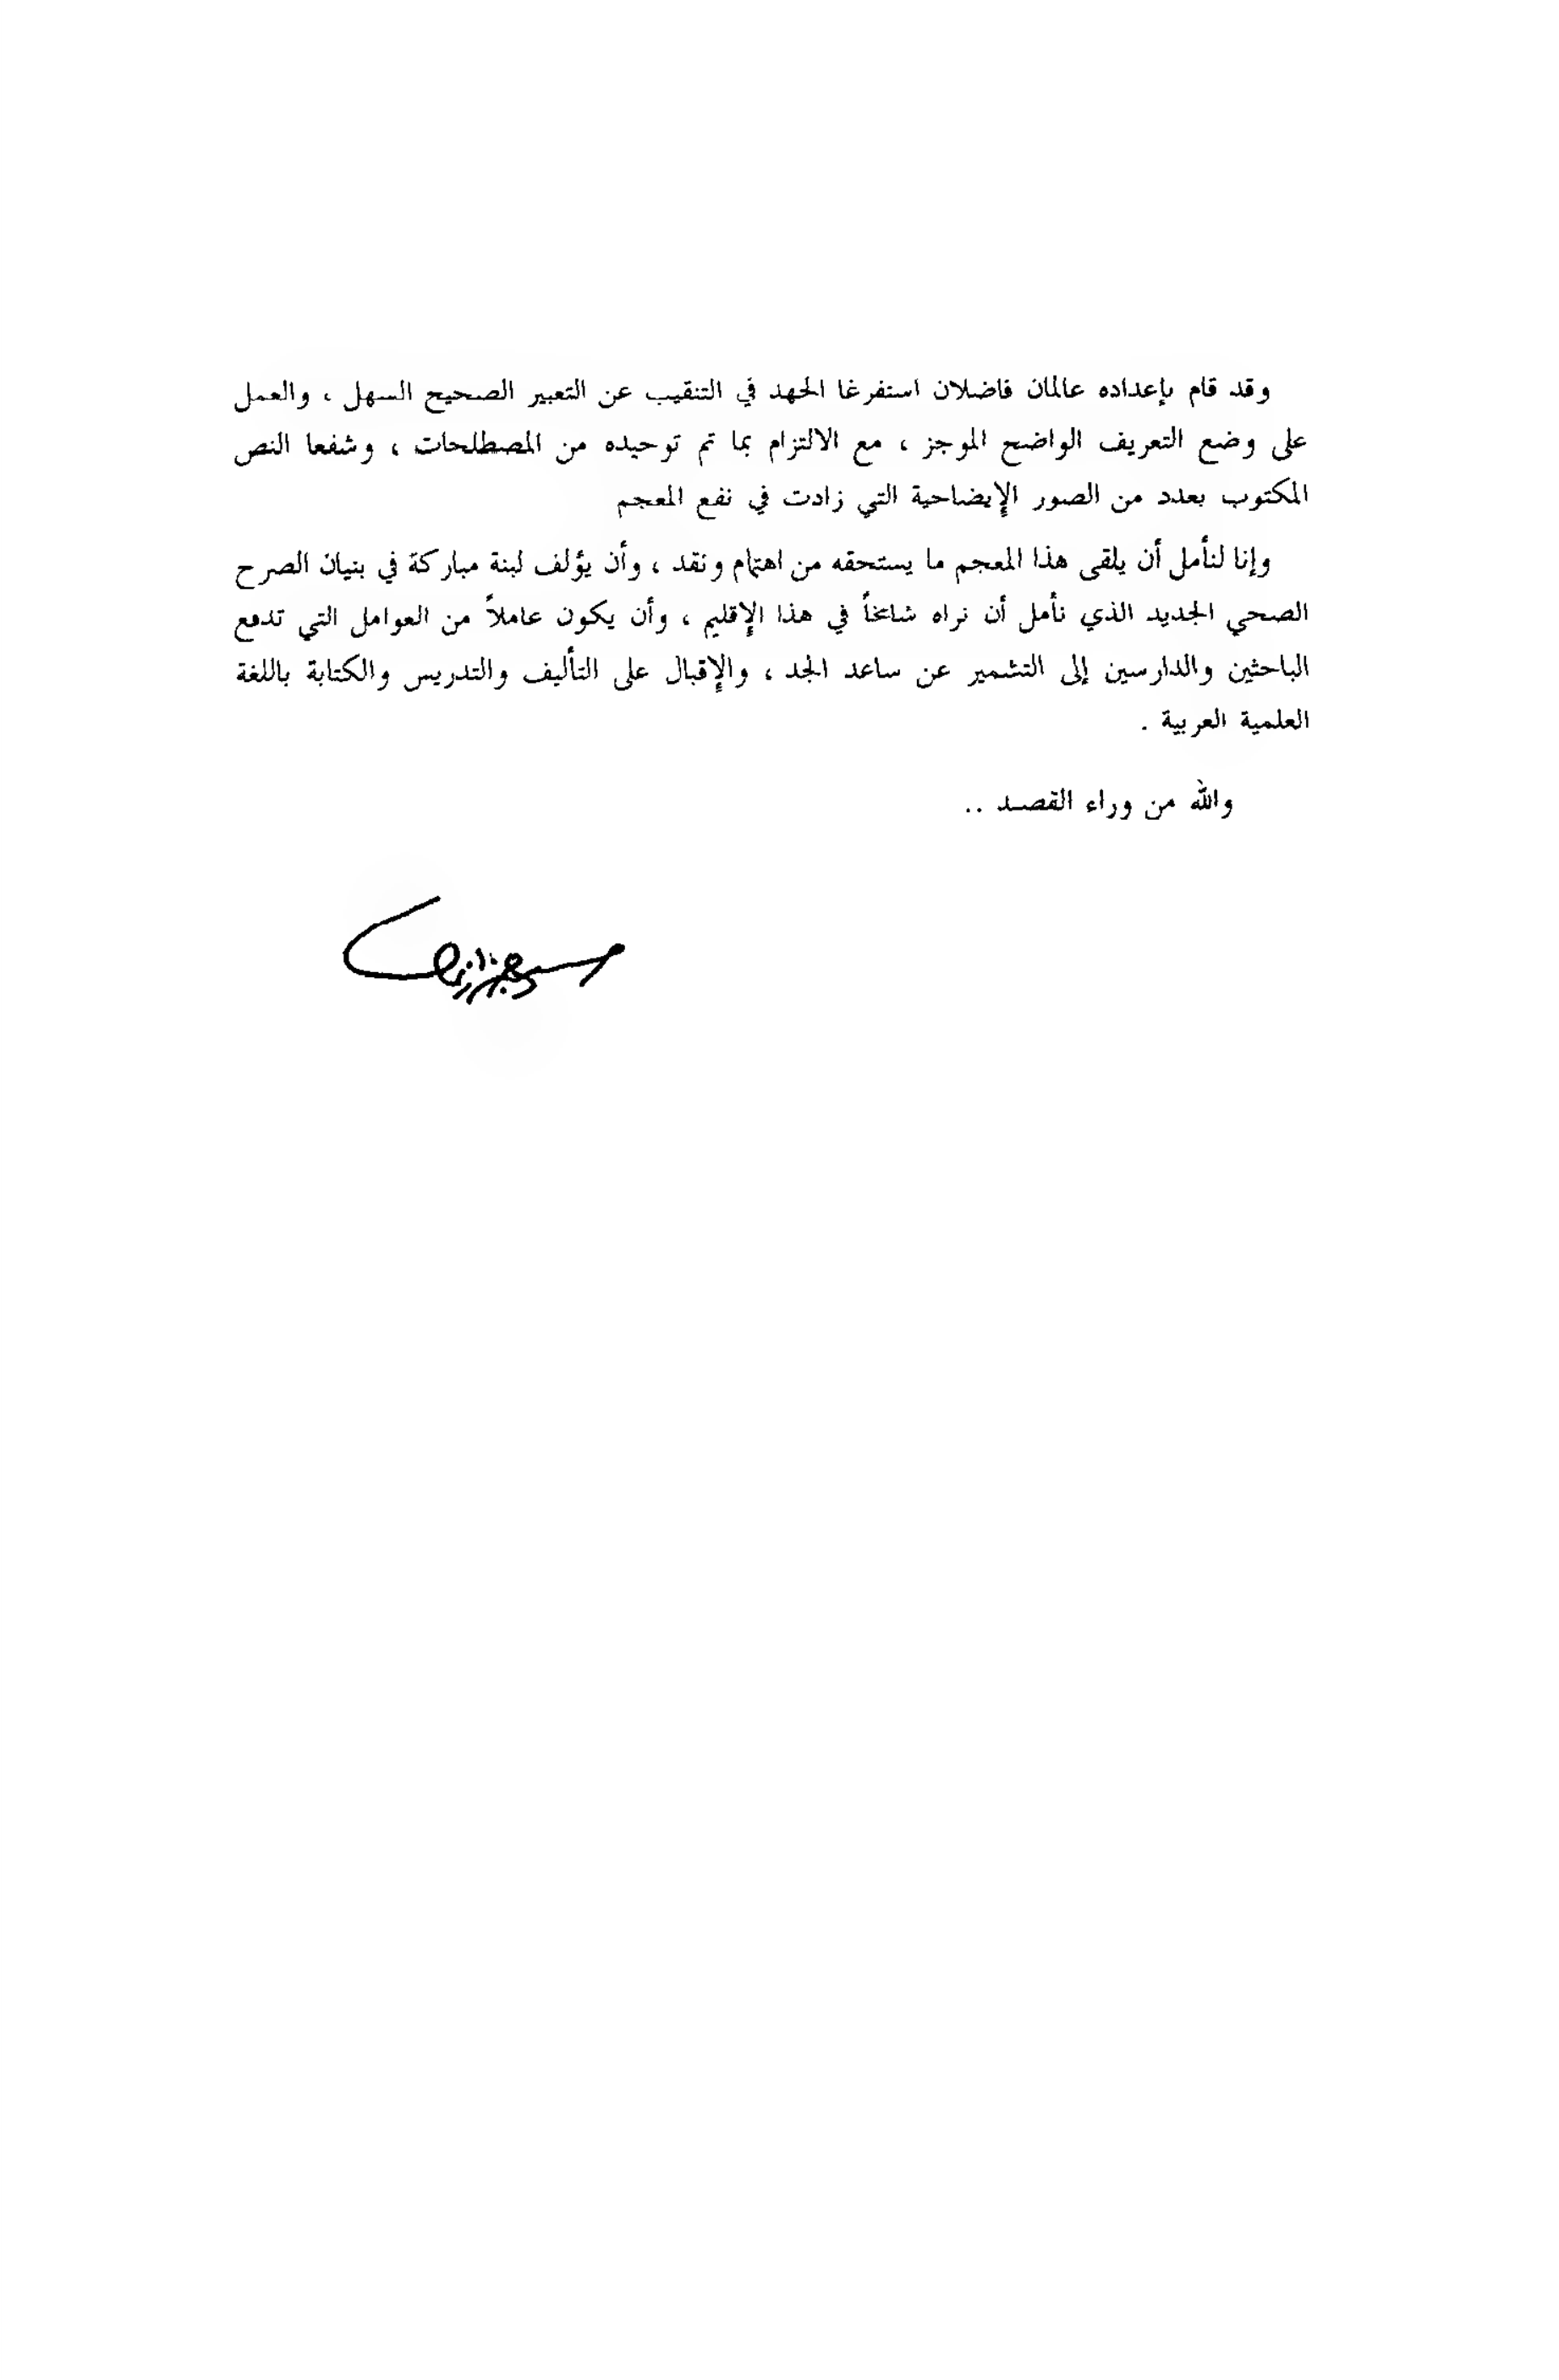 وقد قام بإعداده عالمان فاضلان استفرغا الجهد في التنقيب عن التعبير الصحيح السهل ، والعمل
على وضع التعريف الواضح الموجز ، مع الالتزام بما تم توحيده من المصطلحات ، وشفعا النص
المكتوب بعدد من الصور الإيضاحية التي زادت في نفع المعجم
وإنا لنأمل أن يلقى هذا المعجم ما يستحقه من اهتمام ونقد ، وأن يؤلف لبنة مباركة في بنيان الصرح
الصحي الجديد الذي نأمل أن نراه شامخاً في هذا الإقليم ، وأن يكون عاملاً من العوامل التي تدفع
الباحثين والدارسين إلى التشمير عن ساعد الجد ، والإقبال على التأليف والتدريس والكتابة باللغة
العلمية العربية .
والله من وراء القصد ..